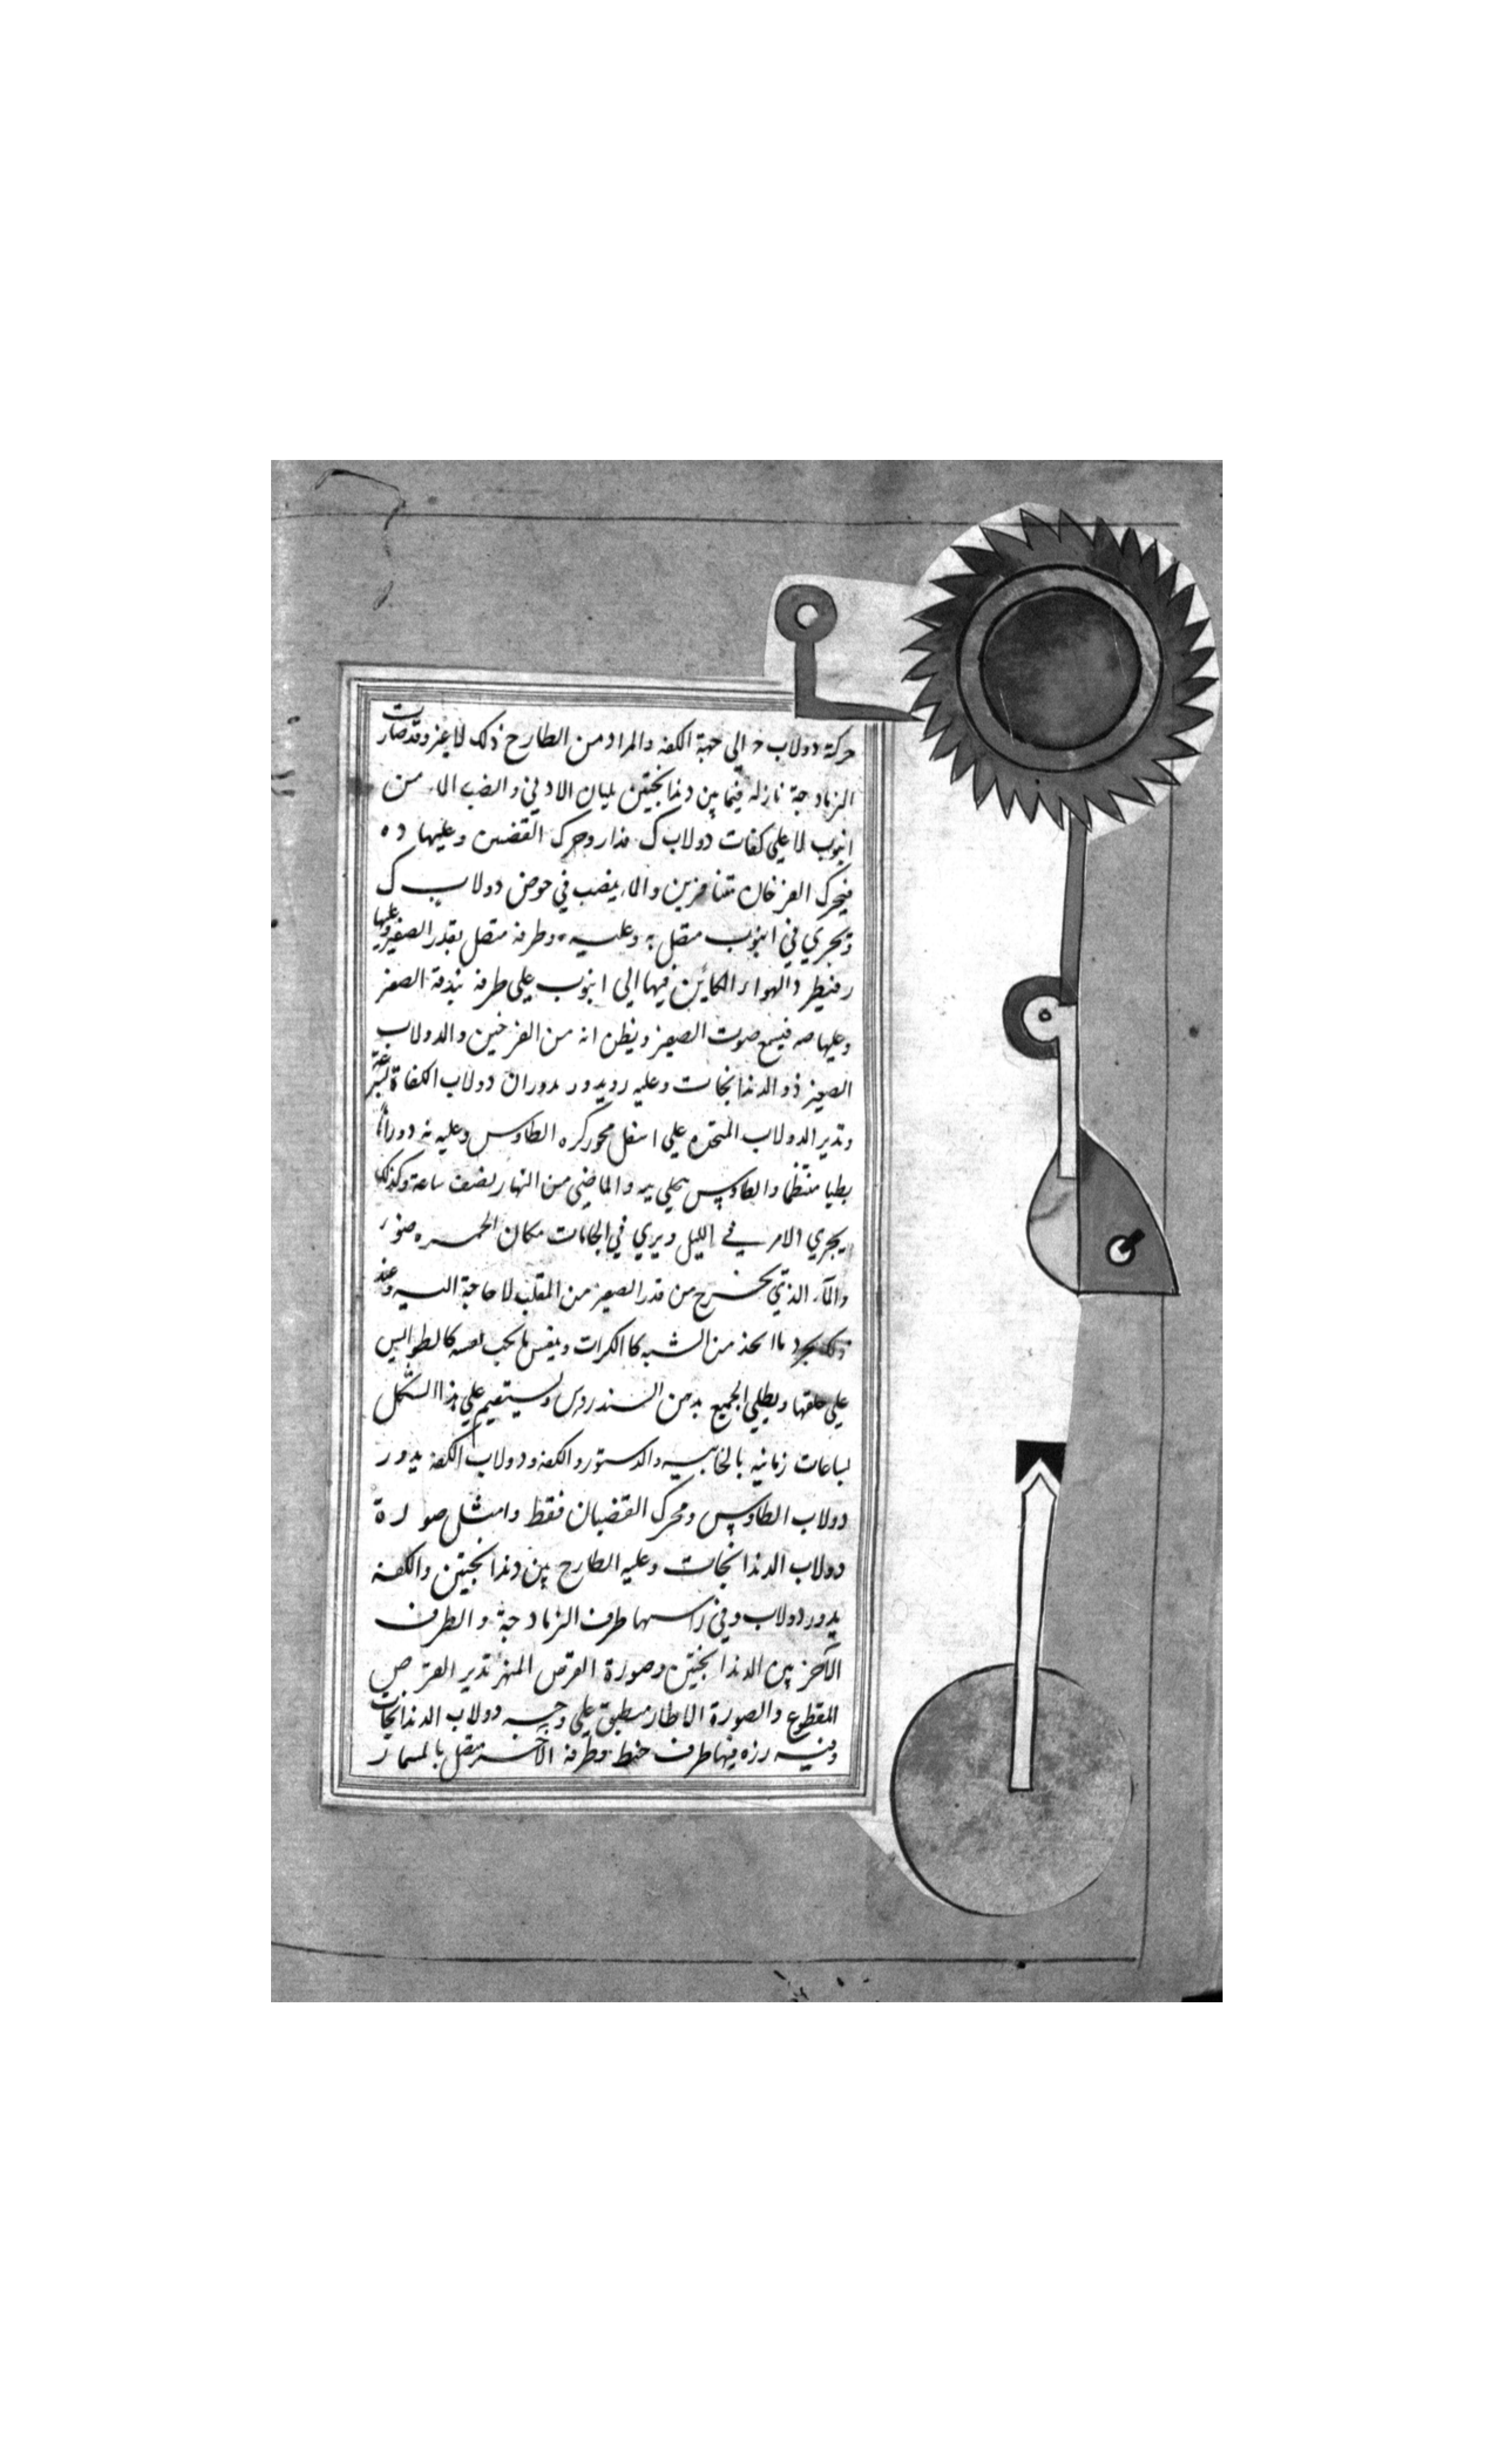 حركة دولاب ح الي جهة الكفه والمراد من الطارح ذلك لا غيز وقد صارت
الزمادجة نازله فيما بين دندانجتين يليان الادني وانصب الماء من
انبوب لا علي كفات دولاب ك فدار وحرك القضيبين وعليها ده
فيحرك الفرخان متنافزين والماء ينصب في حوض دولاب ك
ويجري في انبوب متصل به وعليه ه وطرفه متصل بقدر الصفير وعليها
ر فيطرد الهواء الكاين فيها الي انبوب علي طرفه بندقة الصفير
وعليها صه فيسمع صوت الصفير ويظن انه من الفرخين والدولاب
الصغير ذو الدندانجات وعليه ر ويدور بدوران دولاب الكفاة
وتدير الدولاب المتخذ علي اسفل محور كره الطاوس وعليه نه دورانا
بطيا منتظما والطاوس علي يمه والماضي من النهار نصف ساعة وكذلك
يجري الامر في الليل ويري في الجامات مكان الحمره
والماء الذي يخرج من قدر الصفير من المقلب لا حاجة اليه وعند
ذلك يجرد ما اتخذ من الشبه كالكرات وينقش ما يجب نقشه كالطواليس
علي خلقها ويطلي الجميع بدهن السندروس ويستقيم علي هذا الشكل
لساعات زمانيه بالخابيه والدستور والكفه ودولاب الكفه يدور
دولاب الطاوس ومحرك القضبان فقط وامثل صورة
دولاب الدندانجات وعليه الطارح بين دندانجتين والكفة
يدور دولاب وفي راسها طرف الزمادجة والطرف
الآخر بين الدندانجتين وصورة القرص تدير القرص
المقطوع والصورة الاطار منطبق علي وجه دولاب الدندانجات
وفيه رزه فيها طرف خيط وطرفه الآخر متصل بالمسمار